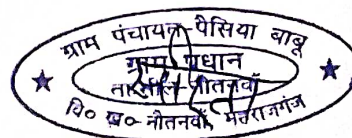 ग्राम पंचायत-पैसिया बाबू
ग्राम प्रधान
तहसील-नौतनवाँ
वि० ख० नौतनवाँ, महराजगंज